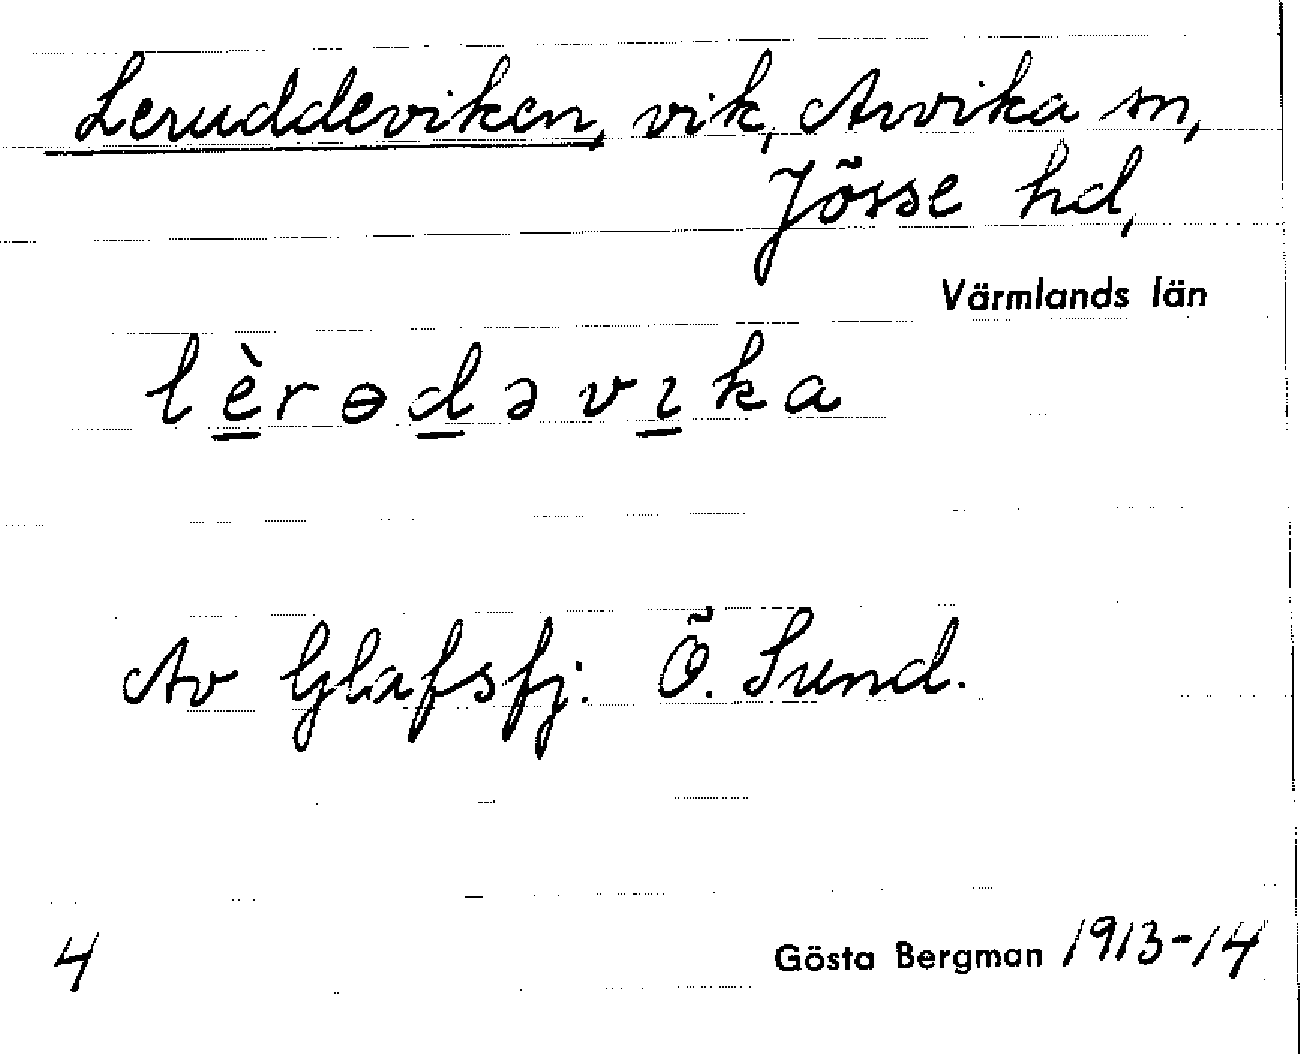 Leruddeviken, vik, Arvika sn,
Jösse hd,
Värmlands län
lèrɵdəvıka
Av Glafsfj. Ö. Sund.
4 Gösta Bergman 1913-14